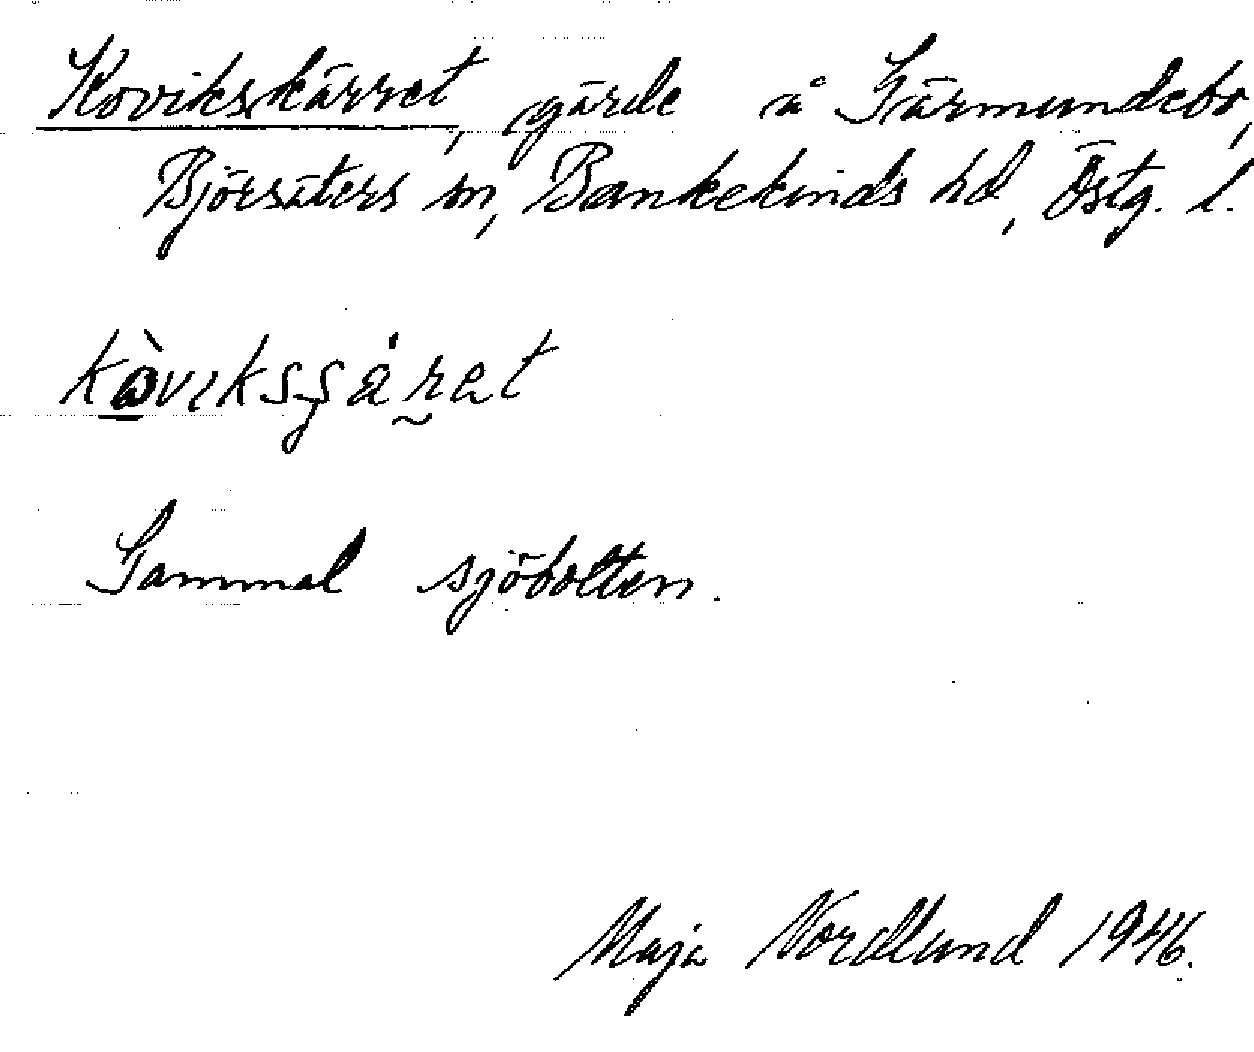 Kovikskärret, gärde å Gärmundebo,
Björsäters sn, Bankekinds hd, Östg. l.
kòviksʂáret
Gammal sjöbotten.
Maja Nordlund 1946.